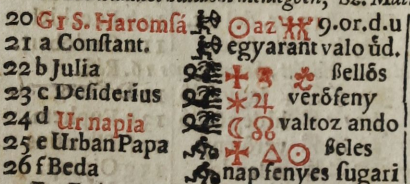 20 G1 S. Haromsá ☉ az ♊ 9. or. d. u
21 a Conſtant. egyarant valo ůd.
22 b Julia ßellős
23 c Deſiderius ✶ ♃ verőfeny
24 d Ur napia ☾ ☊ valtoz ando
25 e Urban Papa △ ☉ ßeles
26 f Beda nap fenyes ſugari